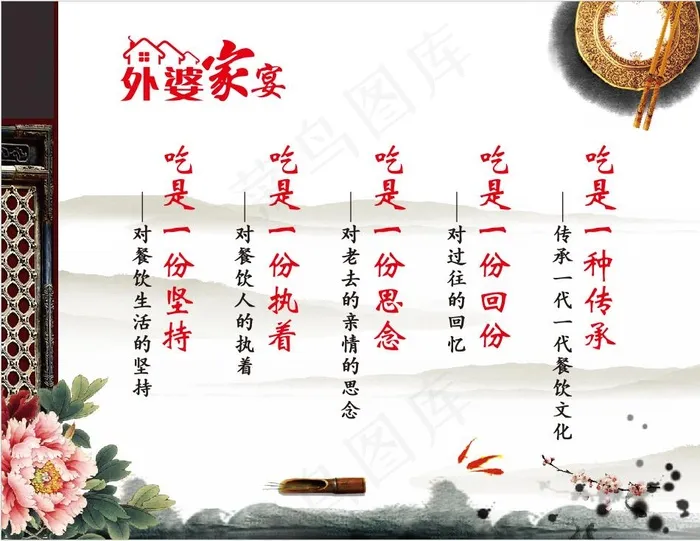 外婆家宴
吃是一种传承
——传承一代一代餐饮文化
吃是一份回份
——对过往的回忆
吃是一份思念
——对老去的亲情的思念
吃是一份执着
——对餐饮人的执着
吃是一份坚持
——对餐饮生活的坚持
菜鸟图库
菜鸟图库